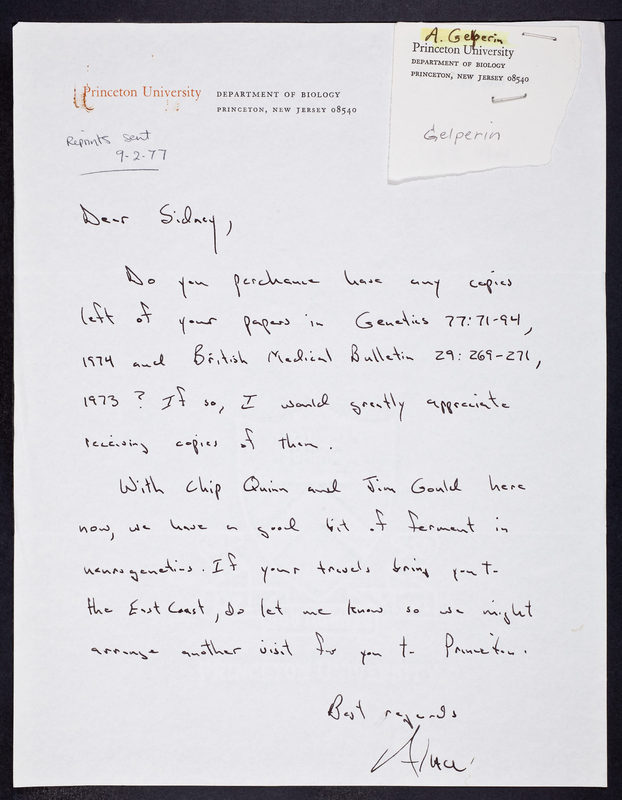 A. Gelperin
Princeton University
DEPARTMENT OF BIOLOGY
PRINCETON, NEW JERSEY 08540
Gelperin
Princeton University
DEPARTMENT OF BIOLOGY
PRINCETON, NEW JERSEY 08540
Reprints sent
9-2-77
Dear Sidney,
Do you perchance have any copies
left of your papers in Genetics 77:71-94,
1974 and British Medical Bulletin 29:269-271,
1973? If so, I would greatly appreciate
receiving copies of them.
With Chip Quinn and Jim Gould here
now, we have a good bit of ferment in
neurogenetics. If your travels bring you to
the East Coast, do let me know so we might
arrange another visit for you to Princeton.
Best regards